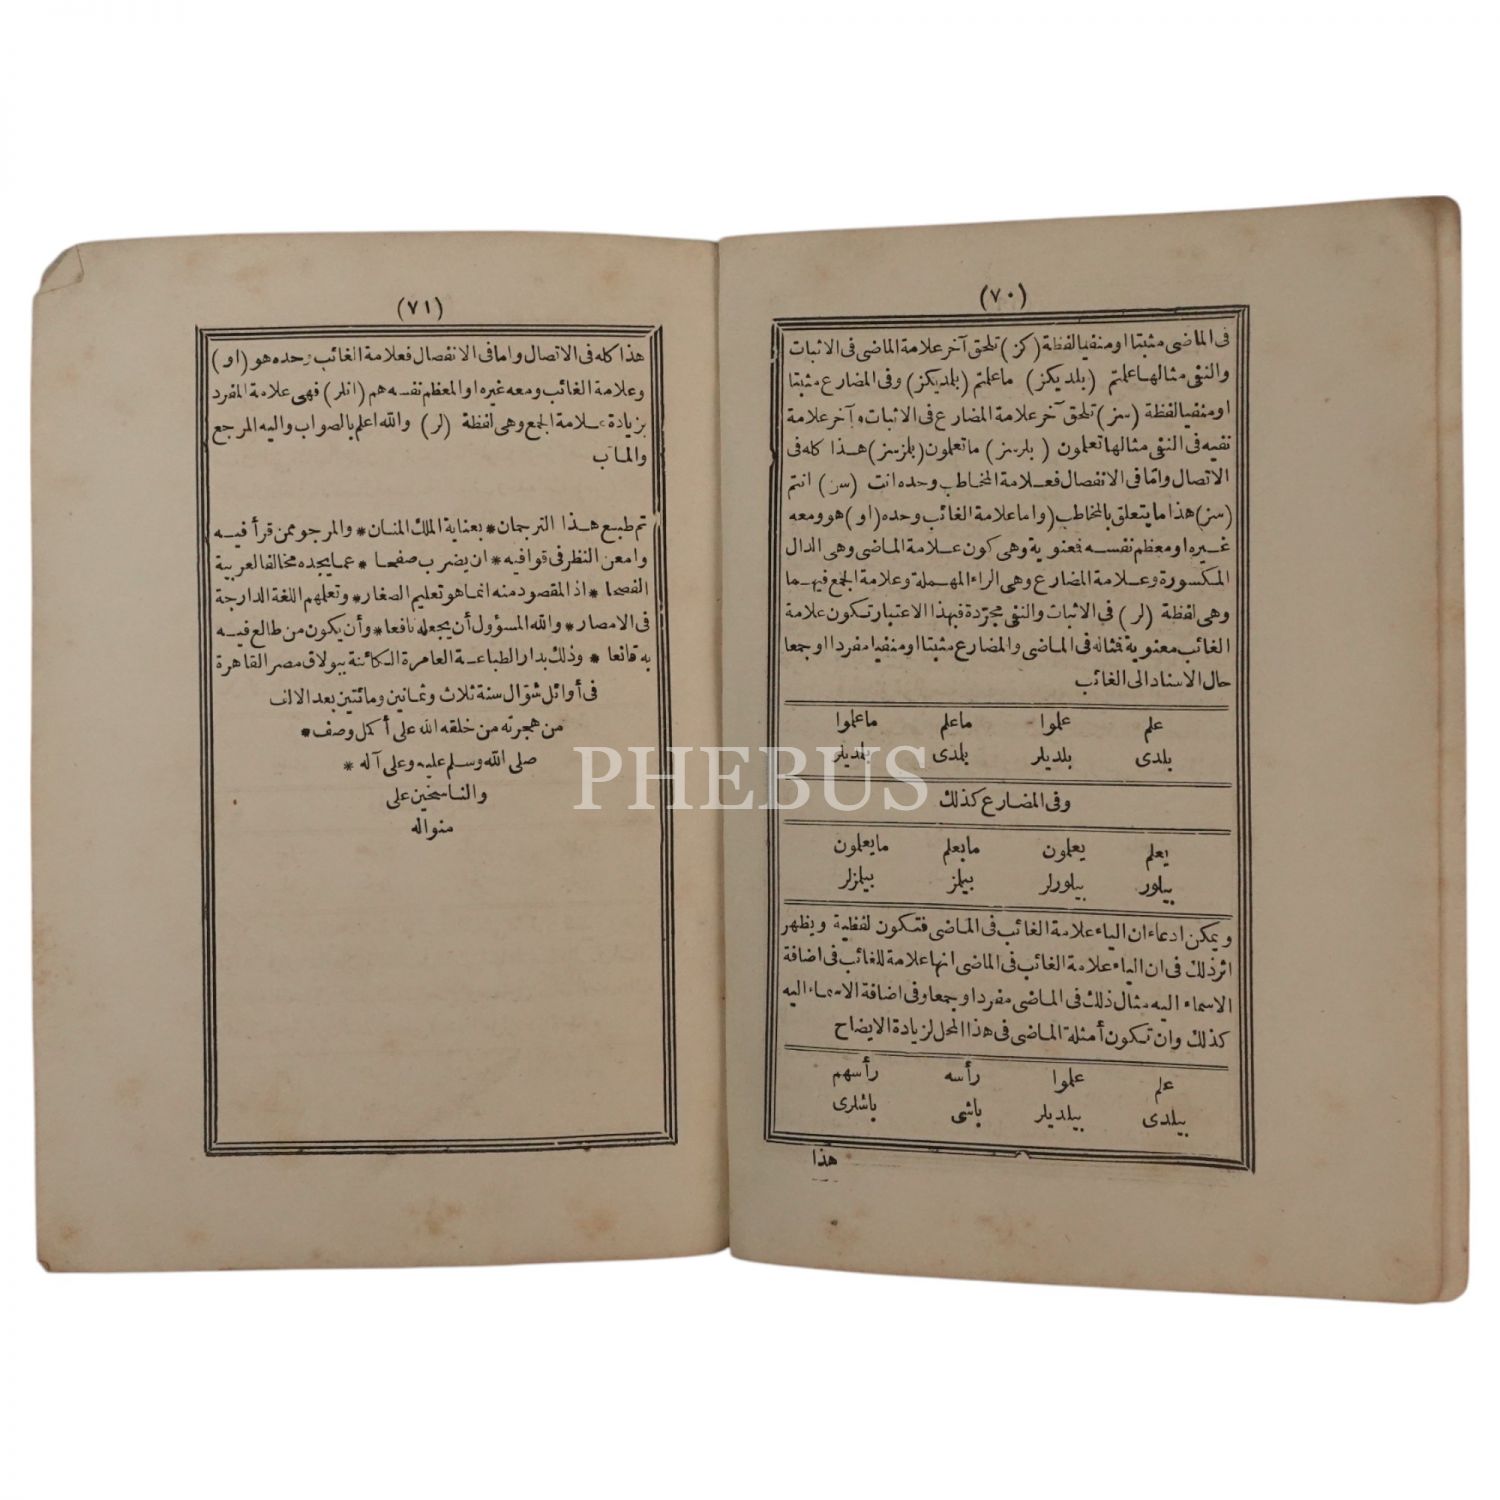 (٧٠)
فى الماضى مثبتا او منفيا لفظة (كز) تلحق آخر علامة الماضى فى الاثبات
والنفى مثالها علمتم (بلديكز) ما علمتم (بلمديكز) وفى المضارع مثبتا
او منفيا لفظة (سز) تلحق آخر علامة المضارع فى الاثبات وآخر علامة
نفيه فى النفى مثالها تعلمون (بلرسز) ما تعلمون (بلمزسز) هذا كله فى
الاتصال وامّا فى الانفصال فعلامة المخاطب وحده انت (سن) انتم
(سز) هذا ما يتعلق بالمخاطب (واما علامة الغائب وحده (او) هو ومعه
غيره او معظم نفسه فعنوية وهى كون علامة الماضى وهى الدال
المكسورة وعلامة المضارع وهى الراء المهملة وعلامة الجمع فيهما
وهى لفظة (لر) فى الاثبات والنفى مجرّدة فبهذا الاعتبار تكون علامة
الغائب معنوية فثاله فى الماضى والمضارع مثبتا او منفيا مفردا او جمعا
حال الاسناد الى الغائب
علم علموا ماعلم ماعلموا
بلدى بلديلر بلمدى بلمديلر
وفى المضارع كذلك
يعلم يعلمون مايعلم مايعلمون
بيلور بيلورلر بيلمز بيلمزلر
ويمكن ادعاء ان الياء علامة الغائب فى الماضى فتكون لفظية ويظهر
اثر ذلك فى ان الياء علامة الغائب فى الماضى انها علامة للغائب فى اضافة
الاسماء اليه مثال ذلك فى الماضى مفردا وجمعا وفى اضافة الاسماء اليه
كذلك وان تكون أمثلة الماضى فى هذا المحل لزيادة الايضاح
علم علموا رأسه رأسهم
بيلدى بيلديلر باشى باشلرى
هذا
(٧١)
هذا كله فى الاتصال واما فى الانفصال فعلامة الغائب وحده هو (او)
وعلامة الغائب ومعه غيره او المعظم نفسه هم (انلر) فهى علامة المفرد
بزيادة علامة الجمع وهى لفظة (لر) والله اعلم بالصواب واليه المرجع
والمآب
تم طبع هذا الترجمان * بعناية الملك المنان * والمرجو ممن قرأ فيه
وامعن النظر فى قوافيه * ان يضرب صفحا * عما يجده مخالفا لعربية
الفصحا * اذ المقصود منه انما هو تعليم الصغار * وتعلمهم اللغة الدارجة
فى الامصار * والله المسؤول أن يجعله نافعا * وأن يكون من طالع فيه
به قانعا * وذلك بدار الطباعة العامرة الكائنة ببولاق مصر القاهرة
فى أوائل شوّال سنة ثلاث وثمانين ومائتين بعد الالف
من هجرته من خلقه الله على أكمل وصف *
صلى الله وسلم عليه وعلى آله *
والناسخين على
منواله
PHEBUS